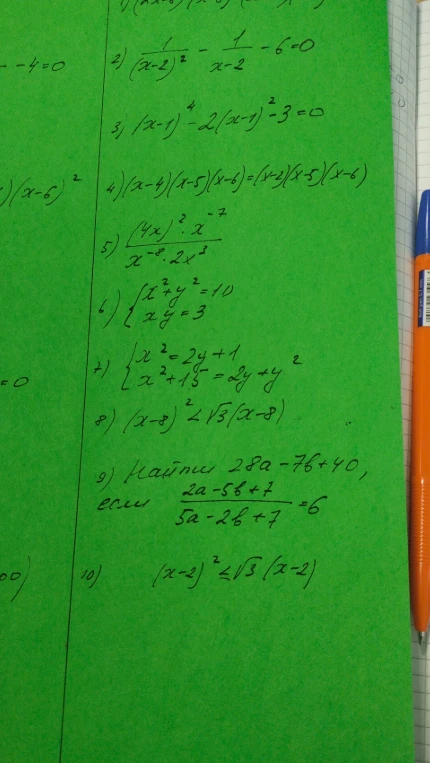 - - 4=0
2) 1/(x-2)² - 1/(x-2) - 6=0
3) (x-1)⁴ - 2(x-1)² - 3=0
)(x-6)²
4) (x-4)(x-5)(x-6)=(x-2)(x-5)(x-6)
5) (4x)²·x⁻⁷ / x⁻⁸·2x³
6) { x²+y²=10
xy=3
7) { x²=2y+1
x²+15=2y+y²
=0
8) (x-8)²<√3(x-8)
9) Найти 28a-7b+40,
если (2a-5b+7)/(5a-2b+7)=6
00)
10) (x-2)²≤√3(x-2)